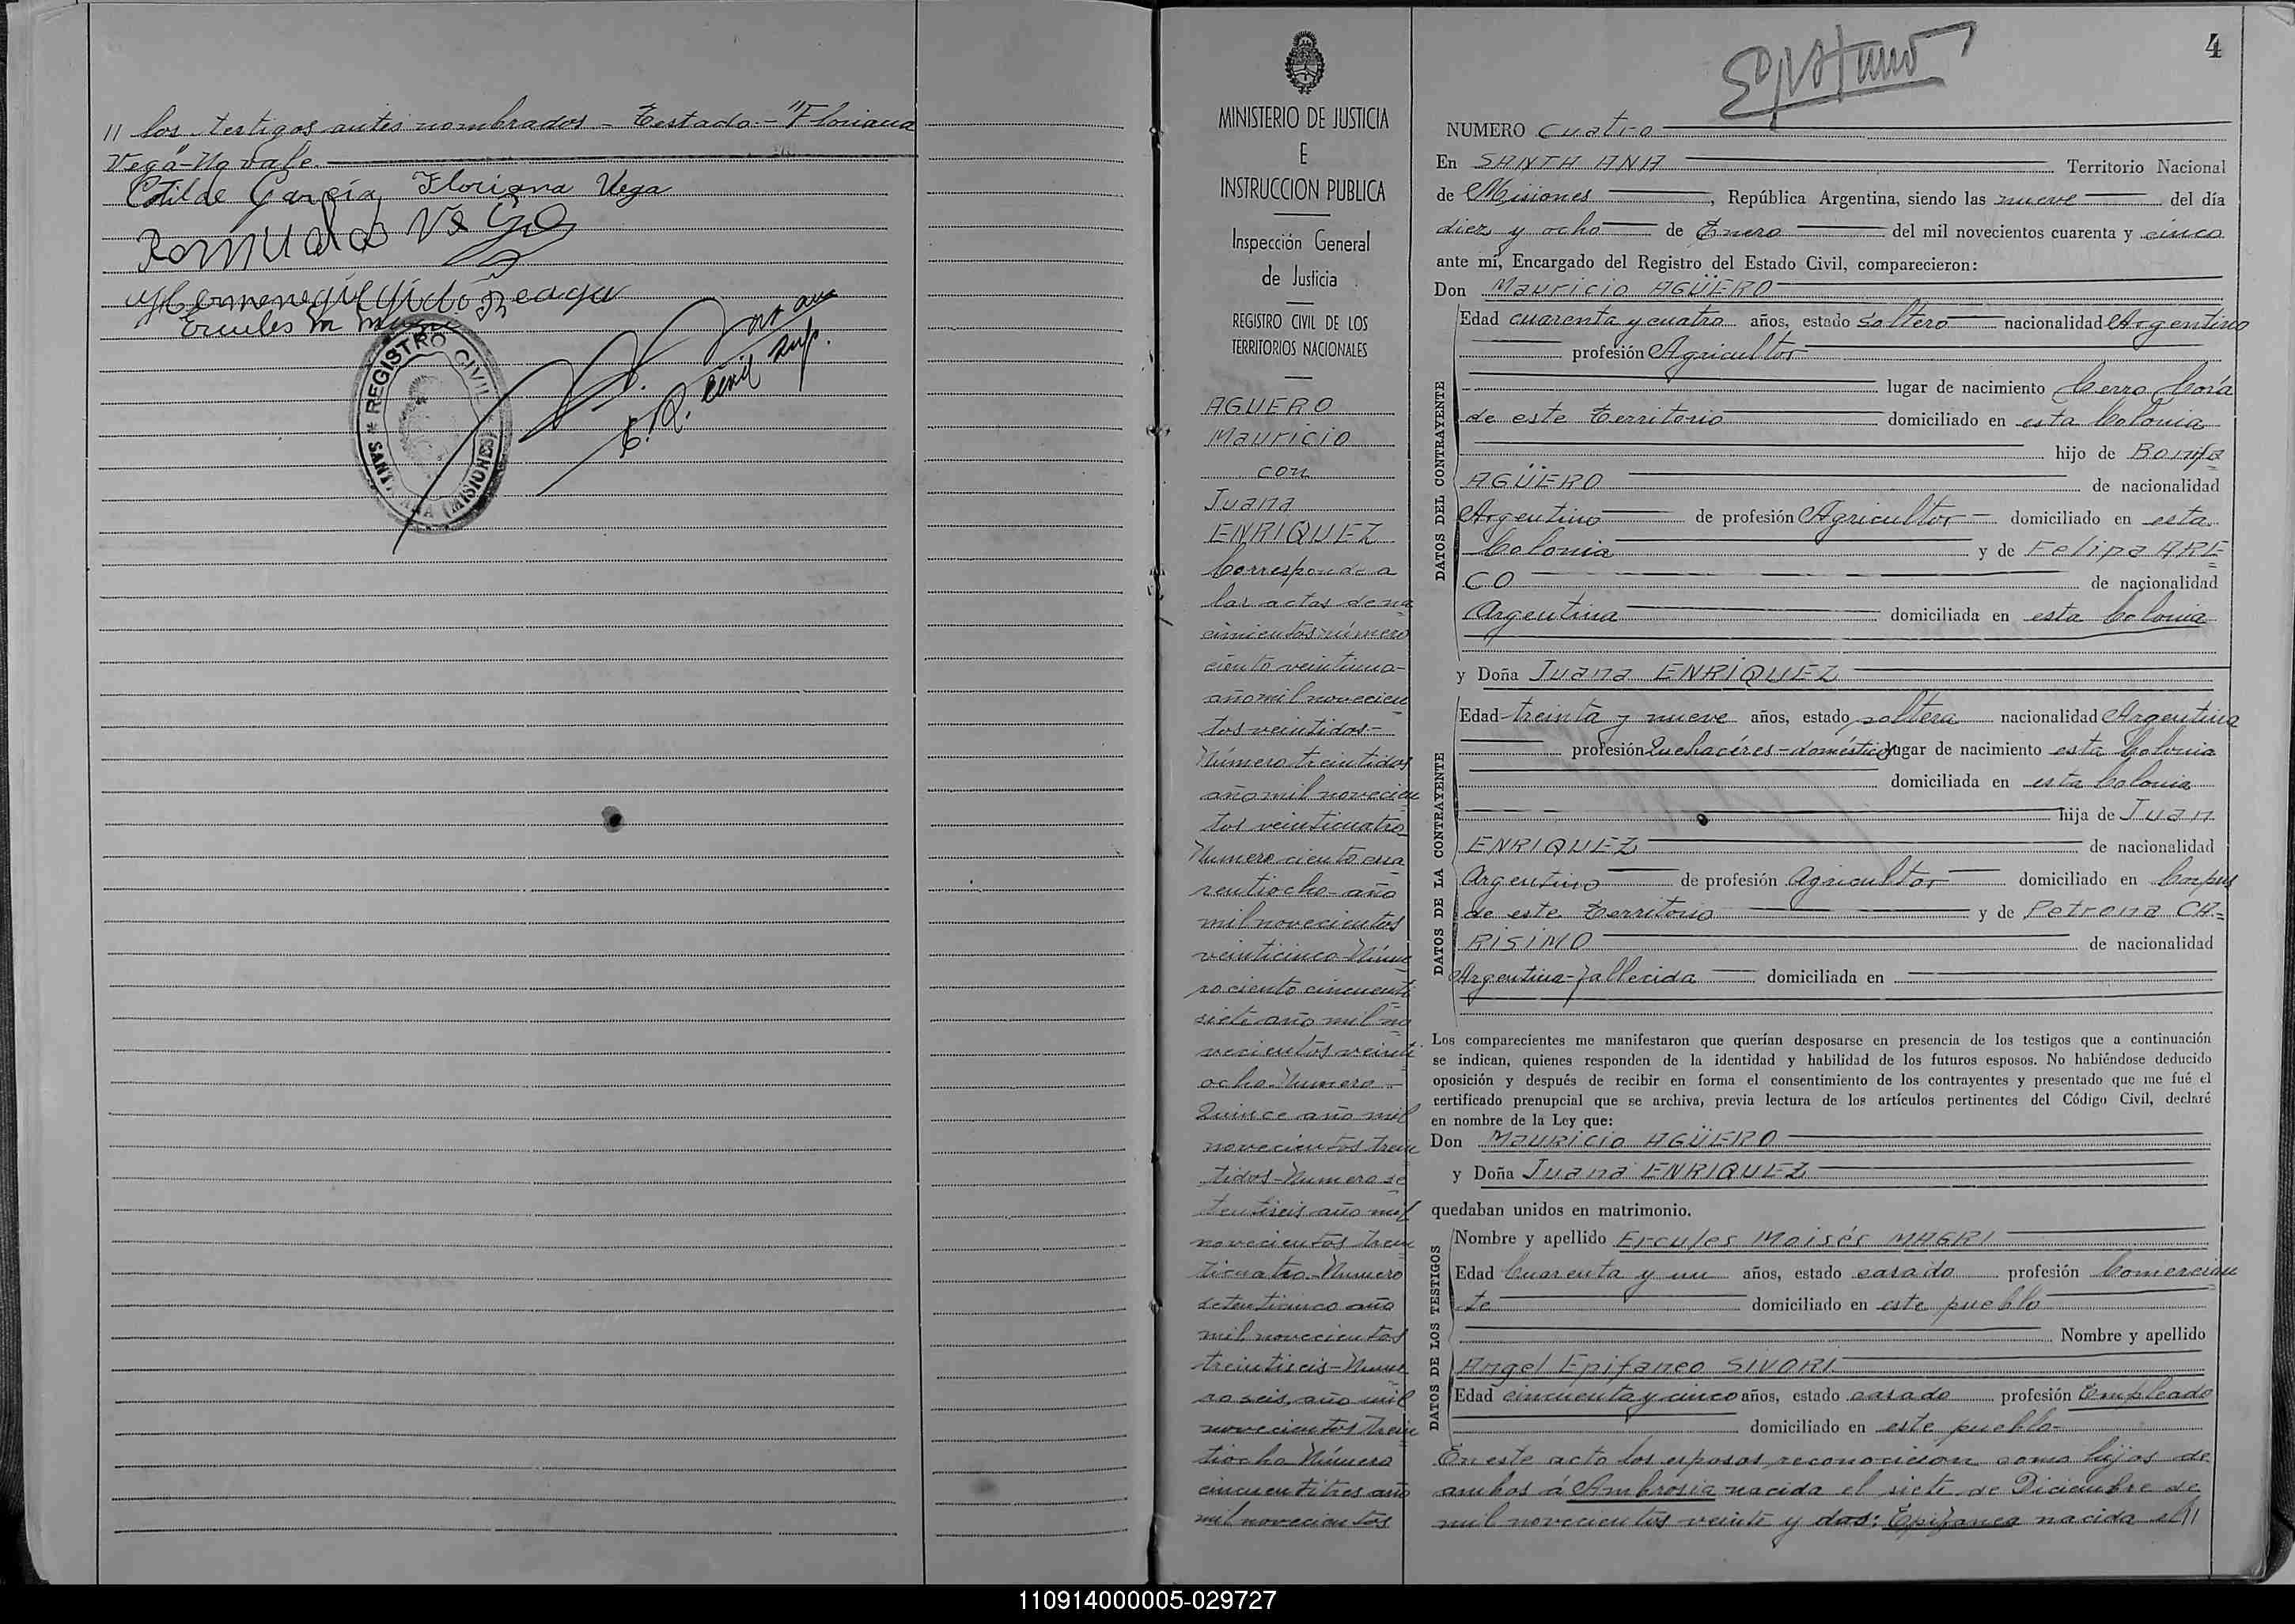 // los testigos antes nombrados – Testado – "Floriana
Vega" – No vale.
Cotilde García Floriana Vega
Romualdo Vega
Hermenegildo
Ercules M Magri
E. R. Civil sup.
REGISTRO CIVIL
SANTA ANA (MISIONES)
MINISTERIO DE JUSTICIA
E
INSTRUCCION PUBLICA
Inspección General
de Justicia
REGISTRO CIVIL DE LOS
TERRITORIOS NACIONALES
AGUERO
Mauricio
con
Juana
ENRIQUEZ
Corresponde a
las actas de na
cimientos número
ciento veintiuno –
año mil novecien
tos veintidos –
Número treintidos
año mil novecien
tos veinticuatro
Numero ciento cua
rentiocho – año
mil novecientos
veinticinco – Núme
ro ciento cincuenti
siete año mil no
vecientos veinti
ocho – Numero –
Quince año mil
novecientos trein
tidos – Numero se
tentiseis año mil
novecientos trein
ticuatro – Numero
setenticinco año
mil novecientos
treintiseis – Nume
ro seis año mil
novecientos trein
tiocho Número
cincuentitres año
mil novecientos
4
NUMERO Cuatro
En SANTA ANA Territorio Nacional
de Misiones, República Argentina, siendo las nueve del día
diez y ocho de Enero del mil novecientos cuarenta y cinco
ante mí, Encargado del Registro del Estado Civil, comparecieron:
Don Mauricio AGÜERO
DATOS DEL CONTRAYENTE
Edad cuarenta y cuatro años, estado soltero nacionalidad Argentino
profesión Agricultor
lugar de nacimiento Cerro Corá
de este Territorio domiciliado en esta Colonia
hijo de Bonifa
AGÜERO de nacionalidad
Argentino de profesión Agricultor domiciliado en esta
Colonia y de Felipa ARE=
CO de nacionalidad
Argentina domiciliada en esta Colonia
y Doña Juana ENRIQUEZ
DATOS DE LA CONTRAYENTE
Edad treinta y nueve años, estado soltera nacionalidad Argentina
profesión Quehacéres – domésticos lugar de nacimiento esta Colonia
domiciliada en esta Colonia
hija de Juan
ENRIQUEZ de nacionalidad
Argentino de profesión Agricultor domiciliado en Corpus
de este Territorio y de Petrona CA=
RISIMO de nacionalidad
Argentina – fallecida domiciliada en
Los comparecientes me manifestaron que querían desposarse en presencia de los testigos que a continuación
se indican, quienes responden de la identidad y habilidad de los futuros esposos. No habiéndose deducido
oposición y después de recibir en forma el consentimiento de los contrayentes y presentado que me fué el
certificado prenupcial que se archiva, previa lectura de los artículos pertinentes del Código Civil, declaré
en nombre de la Ley que:
Don Mauricio AGÜERO
y Doña Juana ENRIQUEZ
quedaban unidos en matrimonio.
DATOS DE LOS TESTIGOS
Nombre y apellido Ercules Moisés MAGRI
Edad Cuarenta y un años, estado casado profesión Comercian
te domiciliado en este pueblo
Nombre y apellido
Angel Epifaneo SIVORI
Edad cincuenta y cinco años, estado casado profesión Empleado
domiciliado en este pueblo –
En este acto los esposos reconocieron como hijos de
ambos á Ambrosia nacida el siete de Diciembre de
mil novecientos veinte y dos: Epifanea nacida el //
110914000005-029727